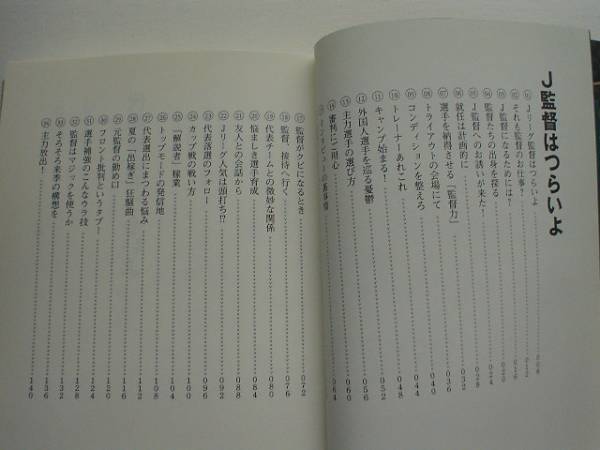 J監督はつらいよ
01 Jリーグ監督はつらいよ 008
02 それも監督のお仕事? 012
03 J監督になるためには? 016
04 監督たちの出身を探る 020
05 J監督へのお誘いが来た! 024
06 就任は計画的に 028
07 選手を納得させる「監督力」 032
08 トライアウトの会場にて 036
09 コンディションを整えろ 040
10 トレーナーあれこれ 044
11 キャンプ始まる! 048
12 外国人選手を巡る憂鬱 052
13 主力選手の選び方 056
14 審判にご用心 060
064
17 監督がクビになるとき 072
18 監督、接待へ行く 076
19 代表チームとの微妙な関係 080
20 悩ましき選手育成 084
21 友人との会話から 088
22 Jリーグ人気は頭打ち!? 092
23 代表落選のフォロー 096
24 カップ戦の戦い方 100
25 「解説者」稼業 104
26 トップモードの発信地 108
27 代表選出にまつわる悩み 112
28 夏の「出稼ぎ」狂騒曲 116
29 元監督の勤め口 120
30 フロント批判というタブー 124
31 選手補強のこんなウラ技 128
32 監督はマジックを使うか 132
33 そろそろ来季の構想を 136
34 主力放出! 140